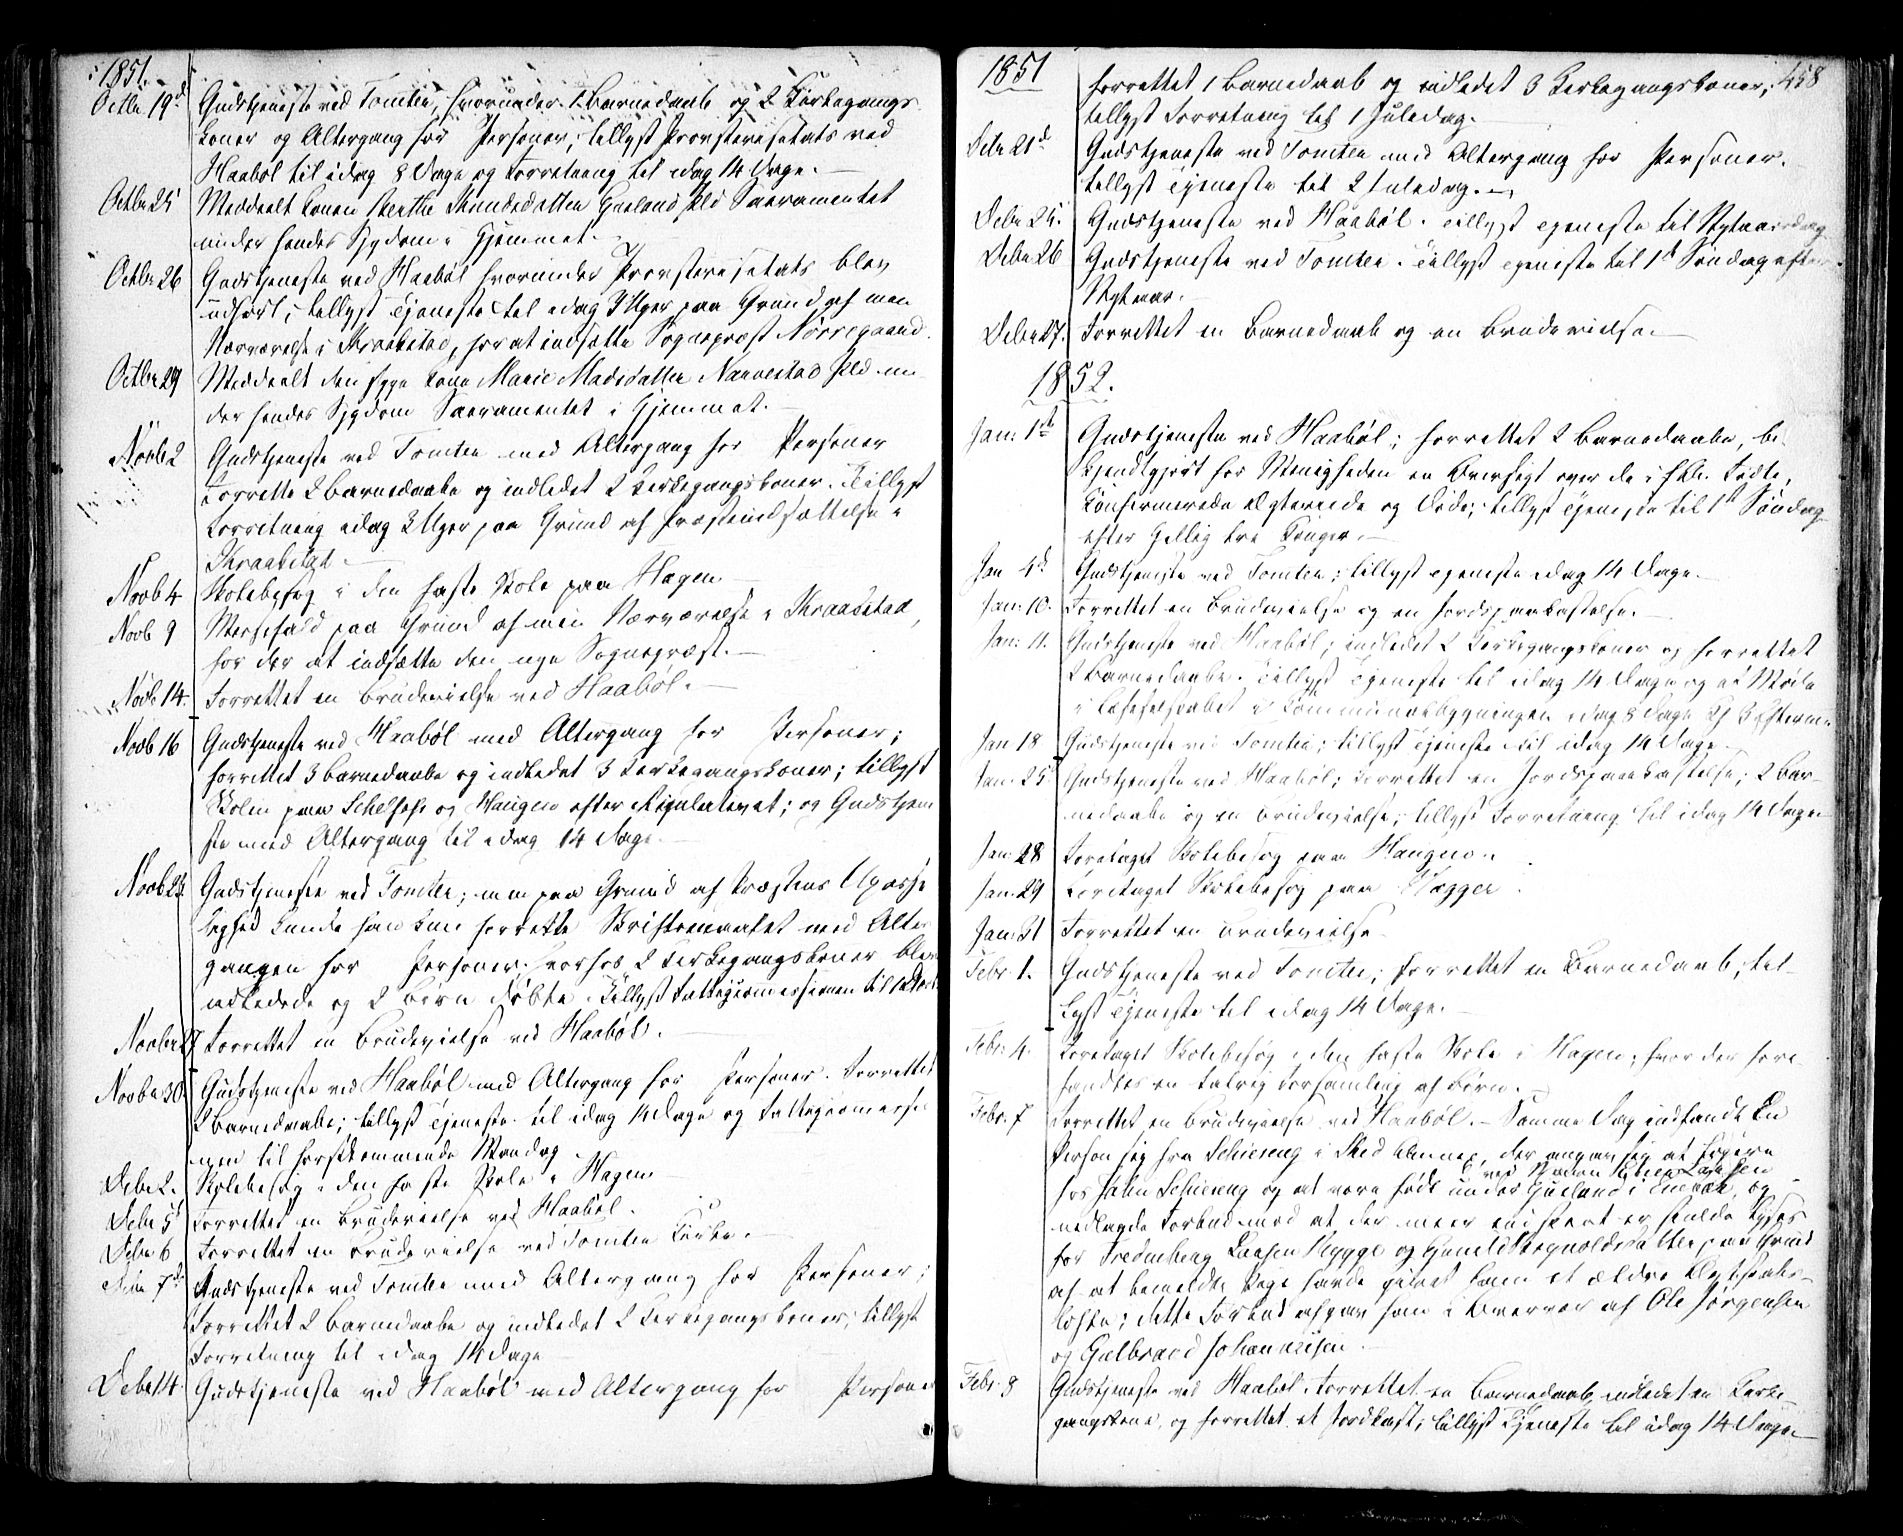 1851.
Octbr 19d Gudstjeneste ved Tomter, hvorunder 1 Barnedaab og 2 Kirkegangs
koner og Altergang for Personer; tillyst Provstevisitats ved
Haabøl til idag 8 Dage og Forretning til idag 14 Dage. —
Octbr 25 Meddeelt Konen Berthe Gueland Sld Sacramentet
under hendes Sygdom i Hjemmet. —
Octbr 26 Gudstjeneste ved Haabøl hvorunder Provstevisitats blev
udført; tillyst Tjeneste til idag 3 Uger paa Grund af min
Nærværelse i Kraakstad, for at indsætte Sognepræst Nørregaard.
Octbr 29 Meddeelt den syge Kone Marie Madsdatter Narvestad Sld un-
der hendes Sygdom Sacramentet i Hjemmet. —
Novbr 2 Gudstjeneste ved Tomter med Altergang for Personer
Forrettet 2 Barnedaabe og indledet 2 Kirkegangskoner. Tillyst
Forretning idag 3 Uger paa Grund af Præsteindsættelse i
Kraakstad. —
Novb 4 Skolebesøg i den faste Skole paa Hagen
Novb 9 Messefald paa Grund af min Nærværelse i Kraakstad,
for der at indsætte den nye Sognepræst. —
Novb 14. Forrettet en Brudevielse ved Haabøl. —
Novb 16 Gudstjeneste ved Haabøl med Altergang for Personer;
forrettet 3 Barnedaabe og indledet 3 Kirkegangskoner; tillyst
Skolen paa og Haugen efter Regulativet; og Gudstjene
ste med Altergang til idag 14 Dage. —
Novb 23 Gudstjeneste ved Tomter; men paa Grund af Præstens Upasse
lighed kunde han kun forrette Skriftemaalet med Alter
gangen for Personer, hvorhos 2 Kirkegangskoner blev
indledede og 2 Børn døbte. Tillyst Fattigcommissionen til
Novbr Forrettet en Brudevielse ved Haabøl. —
Novbr 30. Gudstjeneste ved Haabøl med Altergang for Personer. Forrettet
2 Barnedaabe; tillyst Tjeneste til idag 14 Dage og Fattigcommissio
nen til førstkommende Mandag.
Debr 2. Skolebesøg i den faste Skole i Hagen
Debr 5t Forrettet en Brudevielse ved Haabøl.
Debr 6 Forrettet en Brudevielse ved Tomter Kirke. —
Debr 7d Gudstjeneste ved Tomter med Altergang for Personer;
Forrettet 2 Barnedaabe og indledet 2 Kirkegangskoner; tillyst
Forretning til idag 14 Dage
Debr 14. Gudstjeneste ved Haabøl med Altergang for Personer
1851
458
forrettet 1 Barnedaab og indledet 3 Kirkegangskoner;
tillyst Forretning til 1 Juledag. —
Debr 21d Gudstjeneste ved Tomter med Altergang for Personer.
tillyst Tjeneste til 2 Juledag. —
Debr 25. Gudstjeneste ved Haabøl. Tillyst Tjeneste til Nytaarsdag
Debr 26 Gudstjeneste ved Tomter. Tillyst Tjeneste til 1st Søndag efter
Nytaar. —
Debr 27. Forrettet en Barnedaab og en Brudevielse. —
1852.
Jan: 1st Gudstjeneste ved Haabøl; forrettet 2 Barnedaabe, be-
kjendtgjort for Menigheden en Oversigt over de i Fødte,
Confirmerede Ægteviede og Døde; tillyst Tjeneste til 1st Søndag
efter Hellig tre Konger. —
Jan 4d. Gudstjeneste ved Tomter; tillyst Tjeneste idag 14 Dage. —
Jan: 10. Forrettet en Brudevielse og en Jordspaakastelse. —
Jan: 11. Gudstjeneste ved Haabøl; indledet 2 Kirkegangskoner og forrettet
2 Barnedaabe. Tillyst Tjeneste til idag 14 Dage og et Møde
i Læseselskabet i Communebygningen idag 8 Dage Kl 3 Efterm.
Jan 18 Gudstjeneste ved Tomter; tillyst Tjeneste til idag 14 Dage. —
Jan: 25 Gudstjeneste ved Haabøl; forrettet en Jordspaakastelse; 2 Bar-
nedaabe og en Brudevielse; tillyst Forretning til idag 14 Dage
Jan: 28 Foretaget Skolebesøg paa Haugen.
Jan: 29 Foretaget Skolebesøg paa Hægger.
Jan: 31 Forrettet en Brudevielse.
Febr: 1. Gudstjeneste ved Tomter; forrettet en Barnedaab; til-
lyst Tjeneste til idag 14 Dage. —
Febr: 4. Foretaget Skolebesøg i den faste Skole i Hagen; hvor der fore-
fandtes en talrig Forsamling af Børn. —
Febr. 7 Forrettet en Brudevielse ved Haabøl. — Samme Dag indfandt En
Person sig fra i Sked Annex, der angav sig at
ved Navn Larsen
hos John og at være født under Gueland i Enebak, og
nedlagde Forbud mod at der meer end skeet er skulde lyses
for Fredenberg Larsen og paa Grund
af at bemeldte Pige havde givet ham et ældre Ægteskabs-
løfte; dette Forbud afgav han i Overvær af Ole Jørgensen
og Gulbrand Johannesen. —
Febr. 8 Gudstjeneste ved Haabøl. Forrettet en Barnedaab, indledet en Kirke
gangskone og forrettet et Jordkast; tillyst Tjeneste til idag 14 Dage. —